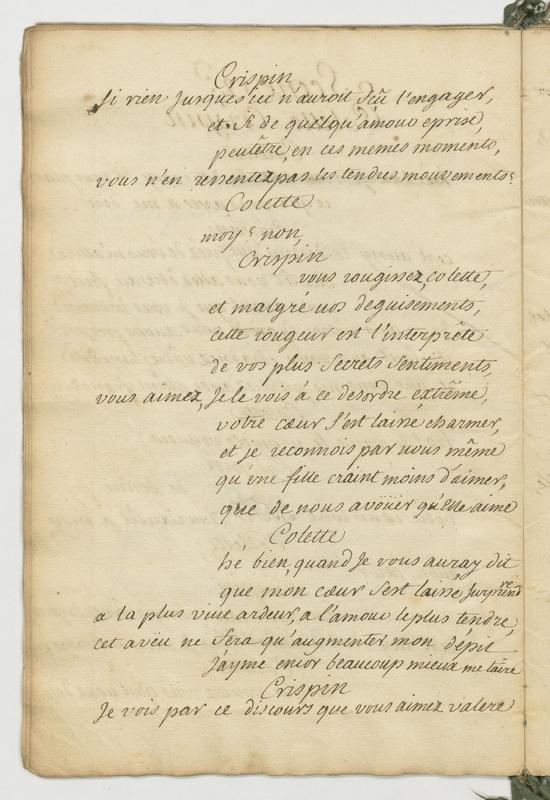 Crispin
Si rien jusques ici n'auroit sçû l'engager,
et si de quelqu'amour eprise,
peutêtre, en ces memes moments,
vous n'en ressentez pas les tendres mouvements?
Colette
moy? non,
Crispin
vous rougissez, colette,
et malgré vos deguisements,
cette rougeur est l'interprête
de vos plus secrets sentiments,
vous aimez, Je le vois à ce desordre extrême,
votre cœur s'est laissé charmer,
et je reconnois par vous même
qu'une fille craint moins d'aimer,
que de nous avoüer qu'elle aime
Colette
hé bien, quand Je vous auray dit
que mon cœur s'est laissé surprendre
a la plus vive ardeur, a l'amour le plus tendre,
cet aveu ne sera qu'augmenter mon dépit
J'ayme encor beaucoup mieux me taire
Crispin
Je vois par ce discours que vous aimez valere